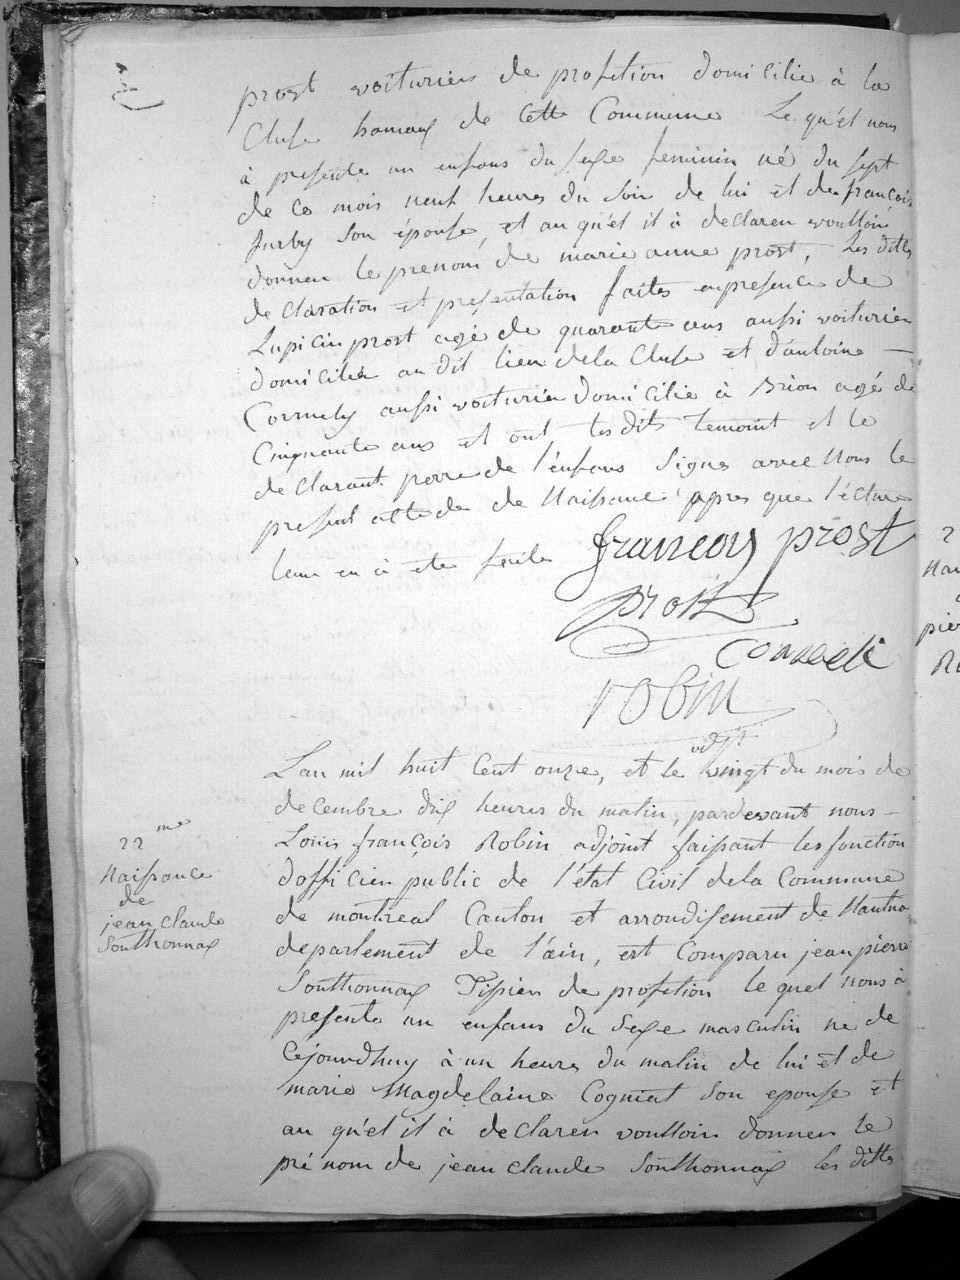 prost voiturier de profetion domicilie à la
Cluse hamaux de cette Commune Le qu'el nous
à presente un enfans du sexe feminin né du sept
de ce mois neuf heures du soir de lui et de françoise
Jurby son épouse, et au qu'el il à declaren voulloir
donnen le prenom de marie anne prost, les dittes
declaration et presentation faites en presence de
Lupicin prost agé de quarante ans aussi voiturier
domicilie au dit lieu dela Cluse et d'antoine
Cornely aussi voiturier domicilie à Brion agé de
Cinquante ans et ont lesdits temoint et le
declarant perre de l'enfans Signes avec Nous le
present acte de Naissance appres que l'ecture
leur en à ete faite
francois prost
prost
robin
L'an mil huit Cent onze, et le vingt du mois de
decembre dix heures du matin, pardevant nous
Louis françois Robin adjoint faissant les fonction
d'officien public de l'état Civil dela Commune
de montreal Canton et arrondisement de Nantua
departement de l'ain, est Comparu jean pierre
Sonthonnax Tissien de profetion le quel nous à
presente un enfans du Sexe masculin ne de
Cejourdhuy à un heures du matin de lui et de
marie Magdelaine Cogniat Son epouse et
au qu'el il à declaren voulloir donnen le
prénom de jean claude Sonthonnax les dittes
22me
Naissance
de
jean claude
Sonthonnax